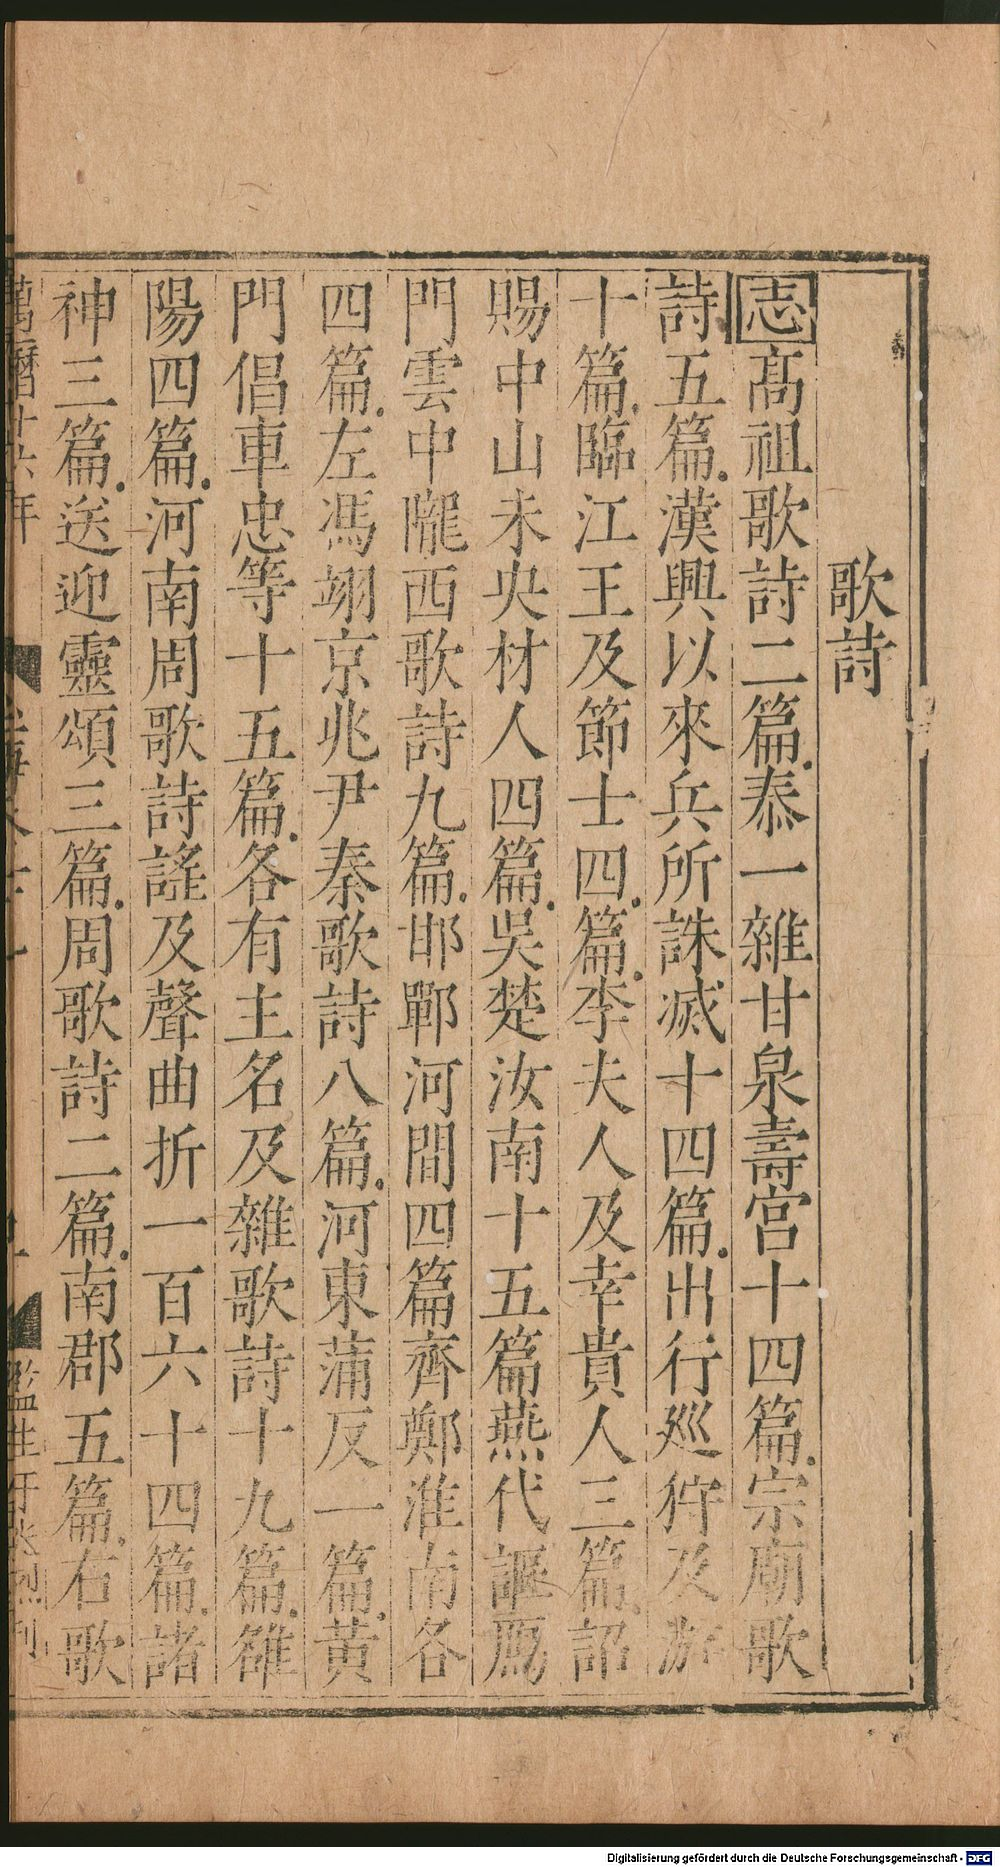 歌詩
志髙祖歌詩二篇泰一雜甘泉壽宮十四篇宗廟歌
詩五篇漢興以來兵所誅滅十四篇出行廵狩及游
十篇臨江王及節士四篇李夫人及幸貴人三篇詔
賜中山未央材人四篇吳楚汝南十五篇燕代謳鴈
門雲中隴西歌詩九篇邯鄲河間四篇齊鄭淮南各
四篇左馮翊京兆尹秦歌詩八篇河東蒲反一篇黃
門倡車忠等十五篇各有主名及雜歌詩十九篇雒
陽四篇河南周歌詩謠及聲曲折一百六十四篇諸
神三篇送迎靈頌三篇周歌詩二篇南郡五篇右歌
萬曆十六年
監生
刊
Digitalisierung gefördert durch die Deutsche Forschungsgemeinschaft - DFG